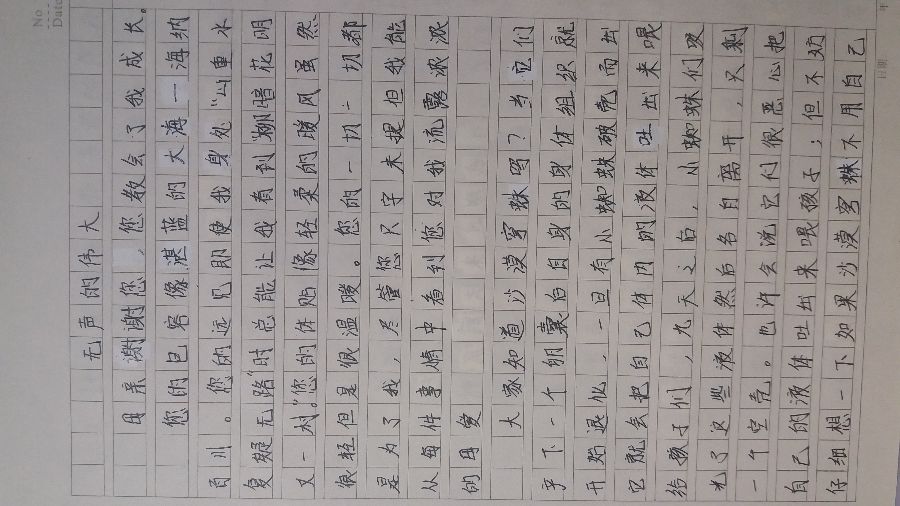 No
Date
日期
无声的伟大
母亲,谢谢您,您教会了我成长。
您的包容像湛蓝的大海一海纳
百川。您的远见即使我身处“山重水
复疑无路”时总能让我看到柳暗花明
又一村。”您的体贴像轻柔的暖风虽然
很轻但是很温暖。您的一切一切都
是为了我,尽管您只字未提但我能
从每件事情中看到您对我流露浓浓
的母爱
大家知道沙漠穹蛛吗?当它们
产下一个卵囊后自身的身体组织就
开始退化,一旦有小蜘蛛破壳而出
它就会把自己体内的液体吐出来喂
给孩子们,九天之后,小蜘蛛们吸
光了这些液体然后各自离开,只剩
一个空壳。也许会说它们很恶心把
自己的液体吐出来喂孩子;但不妨
仔细想一下如果沙漠穹蛛不用自己